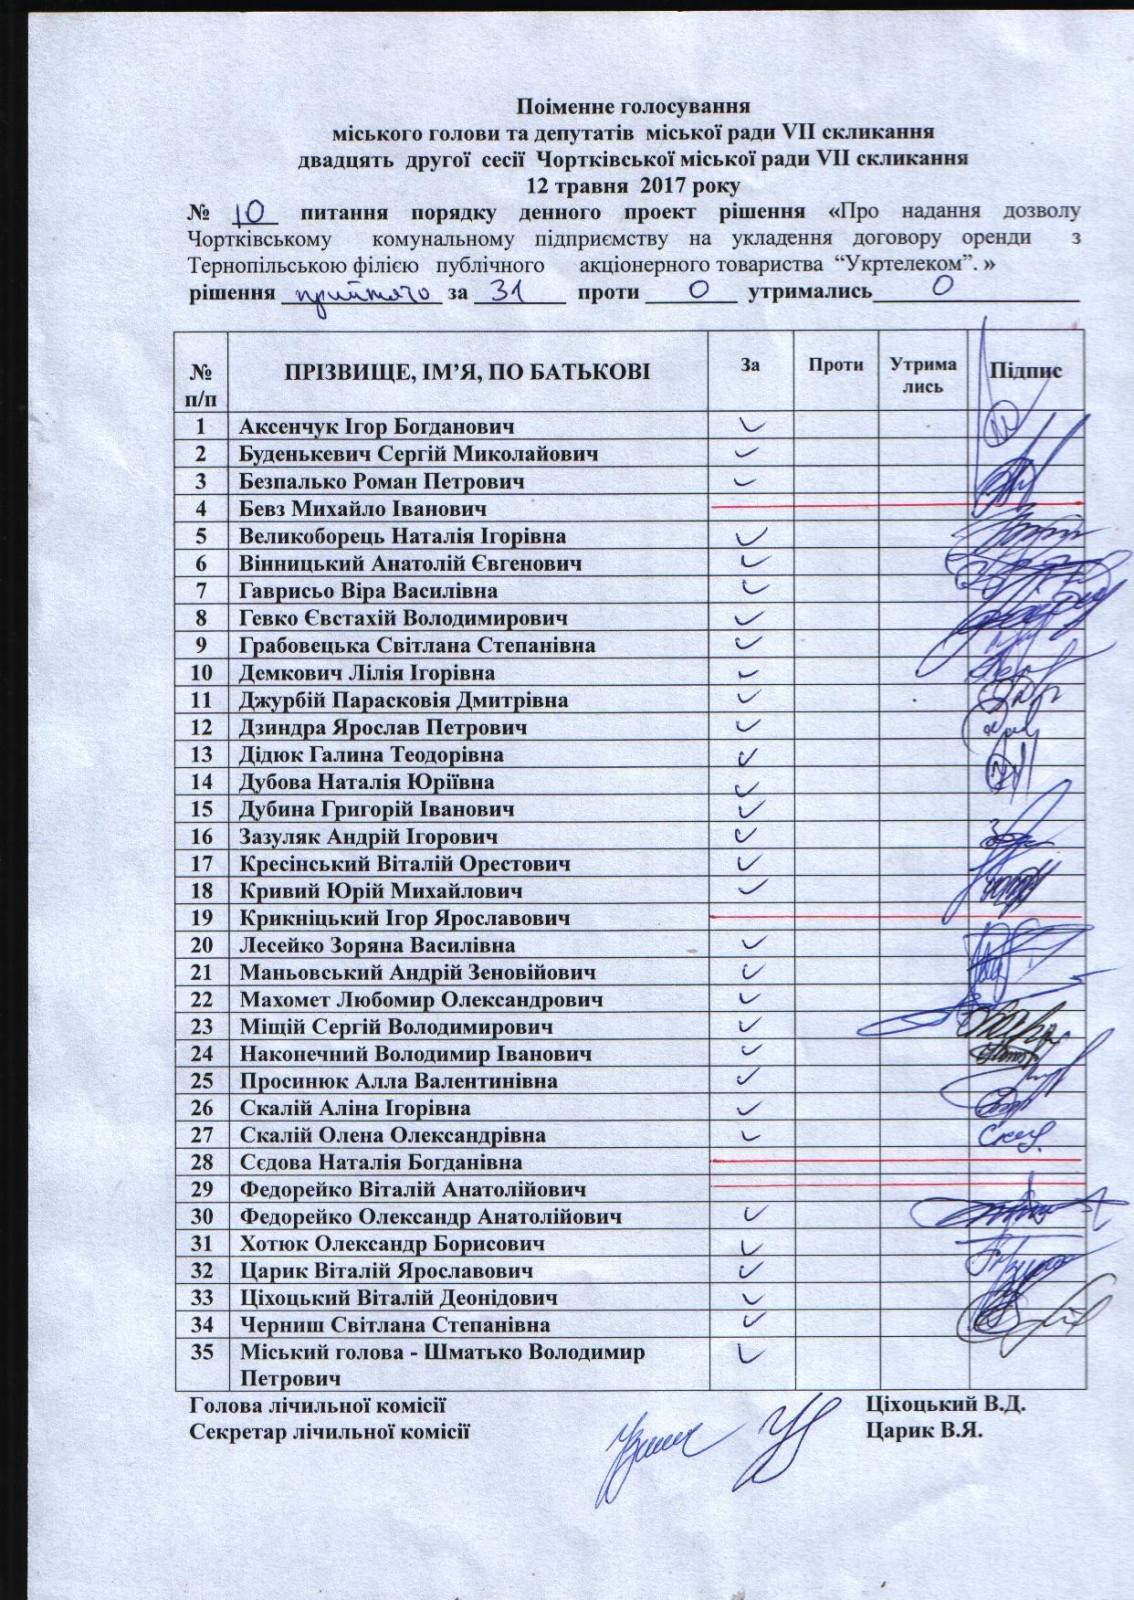 Поіменне голосування
міського голови та депутатів міської ради VII скликання
двадцять другої сесії Чортківської міської ради VII скликання
12 травня 2017 року
№ 10 питання порядку денного проект рішення «Про надання дозволу
Чортківському комунальному підприємству на укладення договору оренди з
Тернопільською філією публічного акціонерного товариства “Укртелеком”. »
рішення прийнято за 31 проти 0 утримались 0
№ п/п ПРІЗВИЩЕ, ІМ’Я, ПО БАТЬКОВІ За Проти Утрима лись Підпис
1 Аксенчук Ігор Богданович
2 Буденькевич Сергій Миколайович
3 Безпалько Роман Петрович
4 Бевз Михайло Іванович
5 Великоборець Наталія Ігорівна
6 Вінницький Анатолій Євгенович
7 Гаврисьо Віра Василівна
8 Гевко Євстахій Володимирович
9 Грабовецька Світлана Степанівна
10 Демкович Лілія Ігорівна
11 Джурбій Парасковія Дмитрівна
12 Дзиндра Ярослав Петрович
13 Дідюк Галина Теодорівна
14 Дубова Наталія Юріївна
15 Дубина Григорій Іванович
16 Зазуляк Андрій Ігорович
17 Кресінський Віталій Орестович
18 Кривий Юрій Михайлович
19 Крикніцький Ігор Ярославович
20 Лесейко Зоряна Василівна
21 Маньовський Андрій Зеновійович
22 Махомет Любомир Олександрович
23 Міщій Сергій Володимирович
24 Наконечний Володимир Іванович
25 Просинюк Алла Валентинівна
26 Скалій Аліна Ігорівна
27 Скалій Олена Олександрівна
28 Сєдова Наталія Богданівна
29 Федорейко Віталій Анатолійович
30 Федорейко Олександр Анатолійович
31 Хотюк Олександр Борисович
32 Царик Віталій Ярославович
33 Ціхоцький Віталій Деонідович
34 Черниш Світлана Степанівна
35 Міський голова - Шматько Володимир
Петрович
Голова лічильної комісії Ціхоцький В.Д.
Секретар лічильної комісії Царик В.Я.